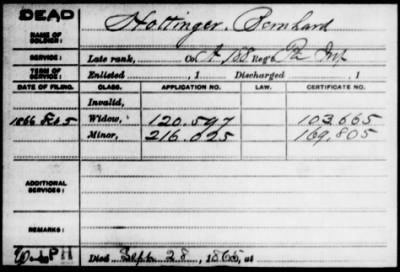 DEAD
NAME OF SOLDIER: Hottinger, Bernhard
SERVICE: Late rank, Co. A, 188 Reg't Pa Inf
TERM OF SERVICE: Enlisted , 1 Discharged , 1
DATE OF FILING. CLASS. APPLICATION NO. LAW. CERTIFICATE NO.
Invalid,
1866 Feb 5 Widow, 120.597 103.665
Minor, 216.025 169.805
ADDITIONAL SERVICES:
REMARKS:
Died Sept 28, 1865, at